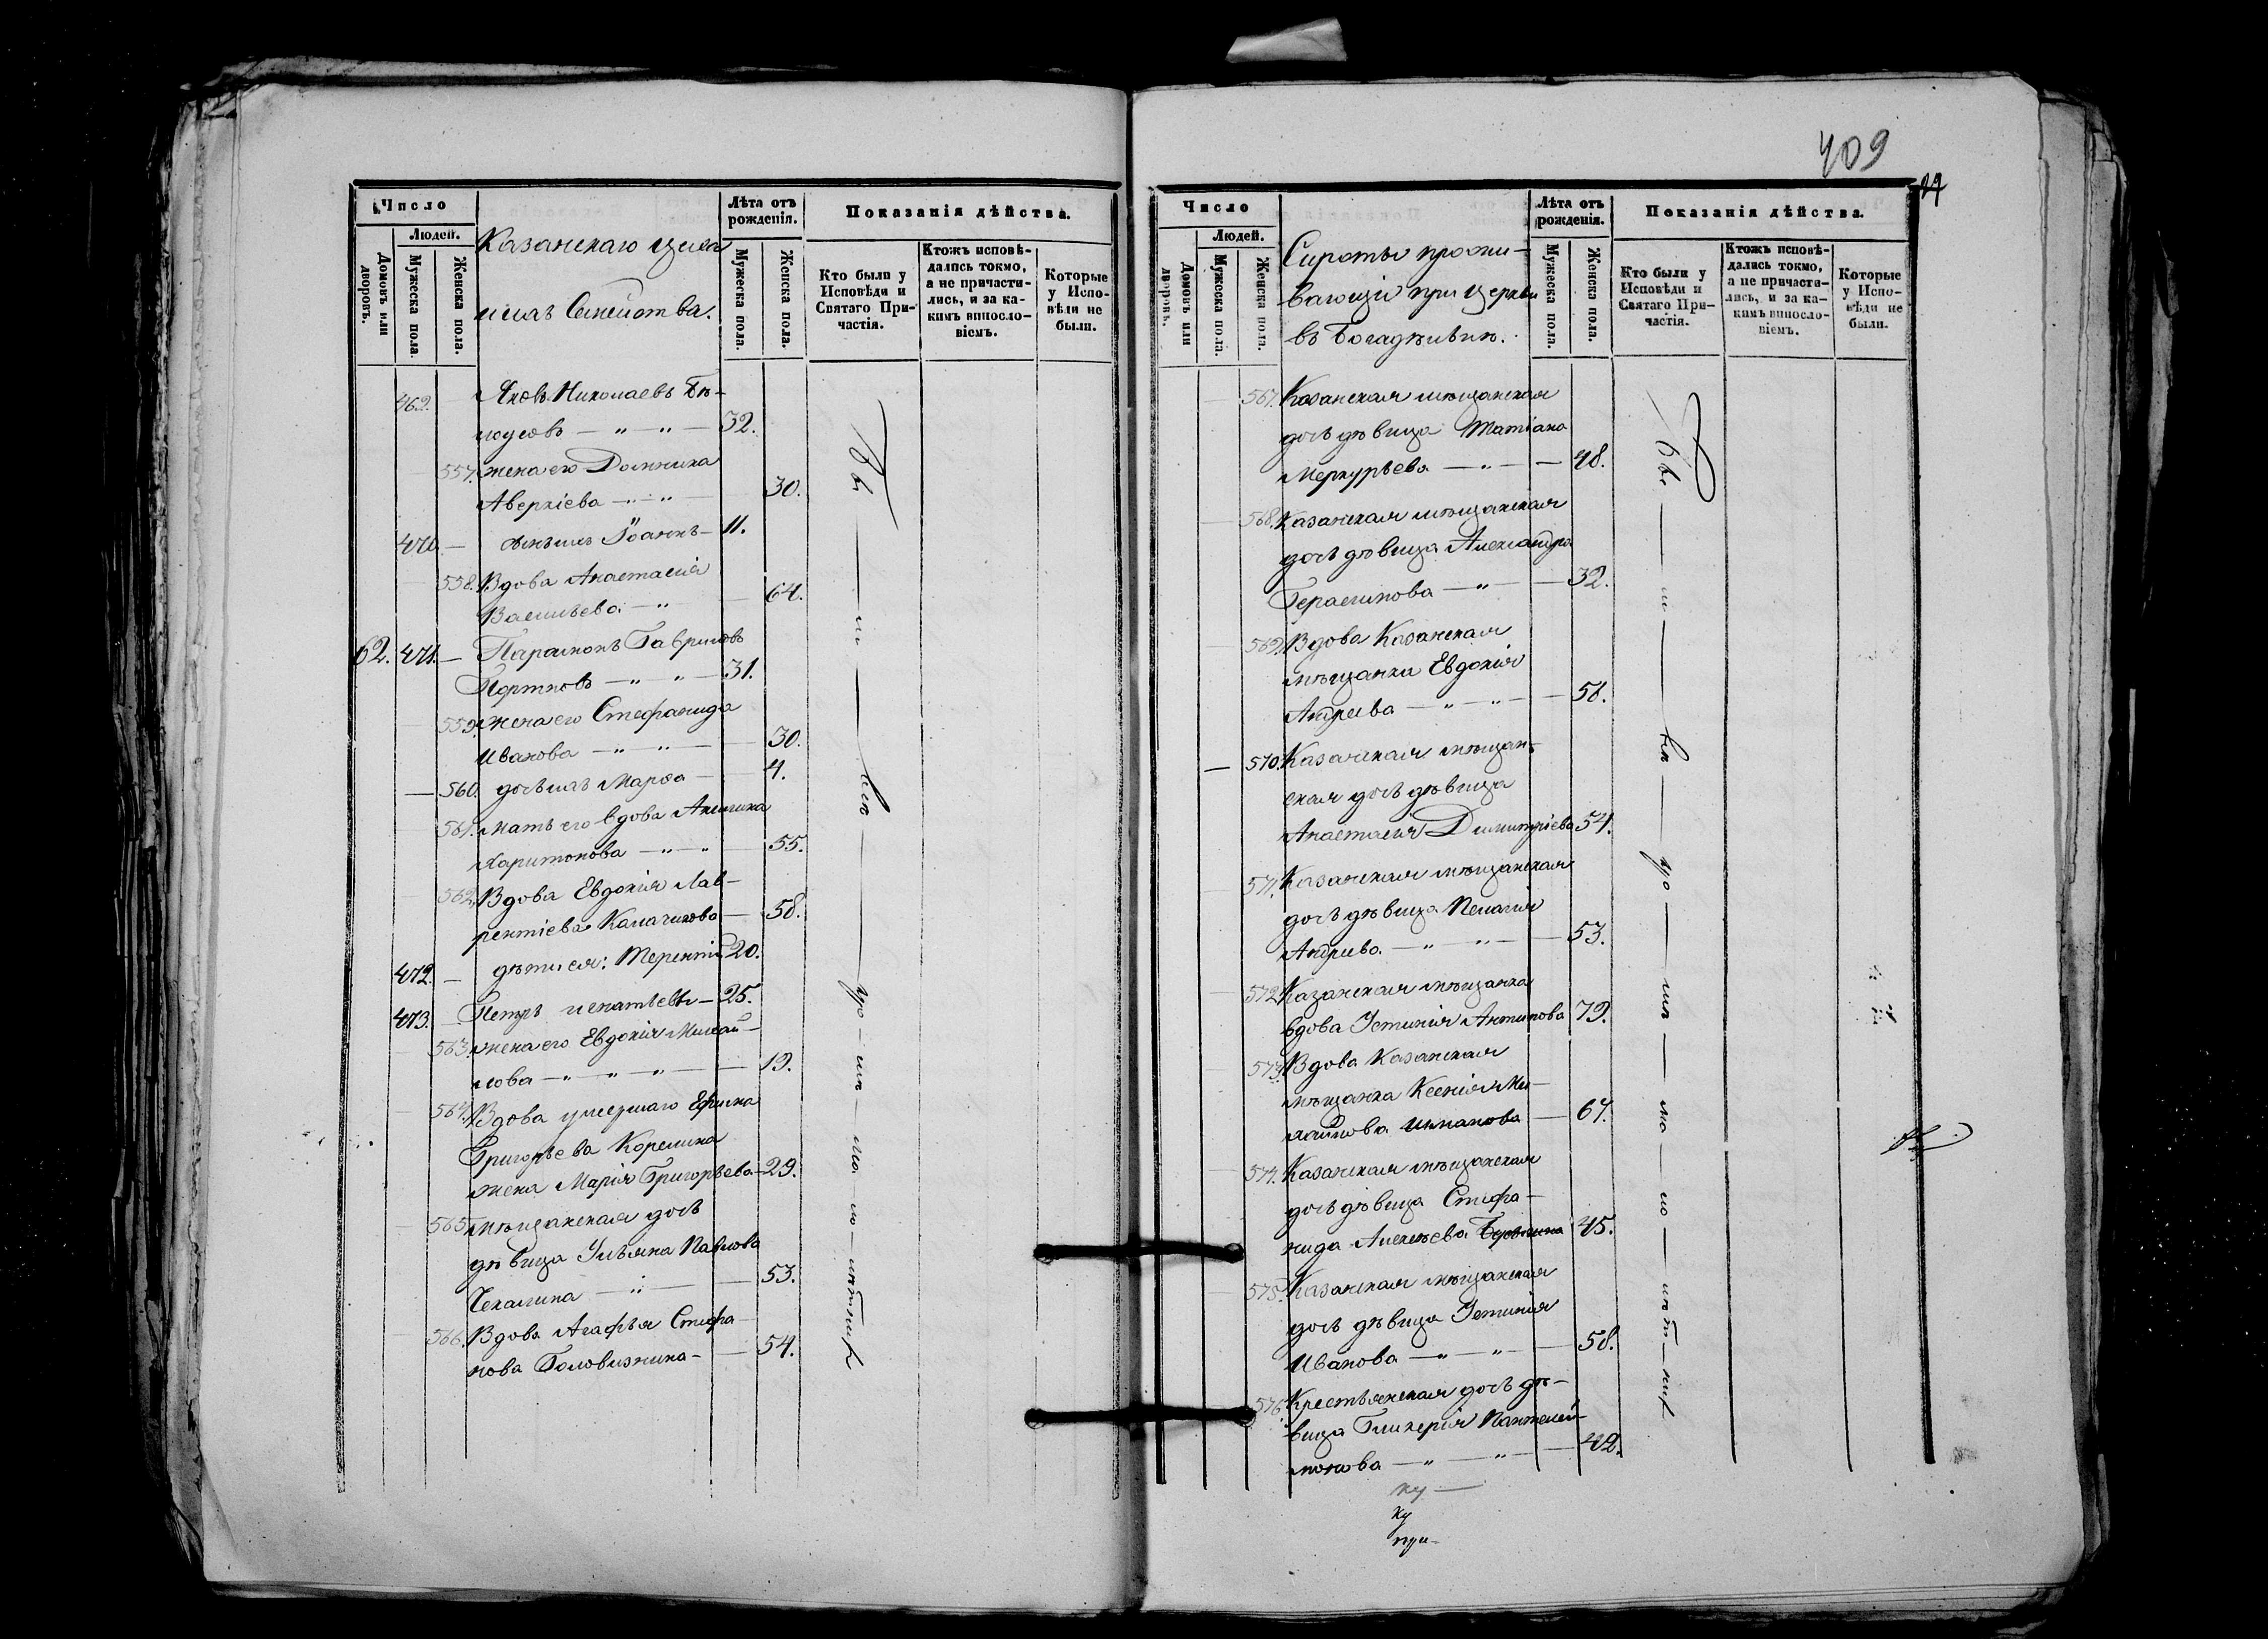 409
Число
Людей.
Домовъ или дворовъ.
Мужеска пола.
Женска пола.
Казанскаго
Семейства.
Лѣта отъ рожденія.
Мужеска пола.
Женска пола.
Показанія дѣйства.
Кто были у Исповѣди и Святаго Причастія.
Ктожъ исповѣдались токмо, а не причастились, и за какимъ винословіемъ.
Которые у Исповѣди не были.
469. Яковъ Николаевъ Бѣ-
лоусовъ — „ — „ — 32.
557. жена его Домника
Аверкіева — „ — „ — 30.
470. — сынъ ихъ Іоаннъ — 11.
558. Вдова Анастасія
Васильева — „ — 64.
62. 471. — Парамонъ Гавриловъ
Портновъ — „ — „ — 31.
559. жена его Стефанида
Иванова — „ — „ — 30.
560. дочь ихъ Марѳа — 4.
561. мать его вдова Акилина
Харитонова — „ — „ — 55.
562. Вдова Евдокія Лав-
рентіева Калачикова — 58.
472. — дѣти ея: Терентій 20.
473. — Петръ Игнатьевы — 25.
563. жена его Евдокія Михай-
лова — „ — „ — „ — 19.
564. Вдова умершаго Ефима
Григорьева Корелина
жена Марія Григорьева — 29.
565. мѣщанская дочь
дѣвица Ульяна Павлова
Чекалина — „ — 53.
566. Вдова Агафья Стефа-
нова Головизнина — 54.
Число
Людей.
Домовъ или дворовъ.
Мужеска пола.
Женска пола.
Сироты прожи-
вающіе при церкви
въ Богадѣльнѣ.
Лѣта отъ рожденія.
Мужеска пола.
Женска пола.
Показанія дѣйства.
Кто были у Исповѣди и Святаго Причастія.
Ктожъ исповѣдались токмо, а не причастились, и за какимъ винословіемъ.
Которые у Исповѣди не были.
567. Казанская мѣщанская
дочь дѣвица Татіана
Меркурьева — „ — 48.
568. Казанская мѣщанская
дочь дѣвица Александра
Герасимова — „ — 32.
569. Вдова Казанская
мѣщанка Евдокія
Андреева — „ — „ — 56.
570. Казанская мѣщан-
ская дочь дѣвица
Анастасія Димитріева 54.
571. Казанская мѣщанская
дочь дѣвица Пелагія
Андреева — „ — „ — 53.
572. Казанская мѣщанка
вдова Устинія Антипова 79.
573. Вдова Казанская
мѣщанка Ксенія Ми-
хайлова — 67.
574. Казанская мѣщанская
дочь дѣвица Стефа-
нида Алексѣева 45.
575. Казанская мѣщанская
дочь дѣвица Устинія
Иванова — „ — „ — 58.
576. Крестьянская дочь дѣ-
вица Гликерія Пантелей-
монова — „ — „ — 42.
ку —
ку
при-